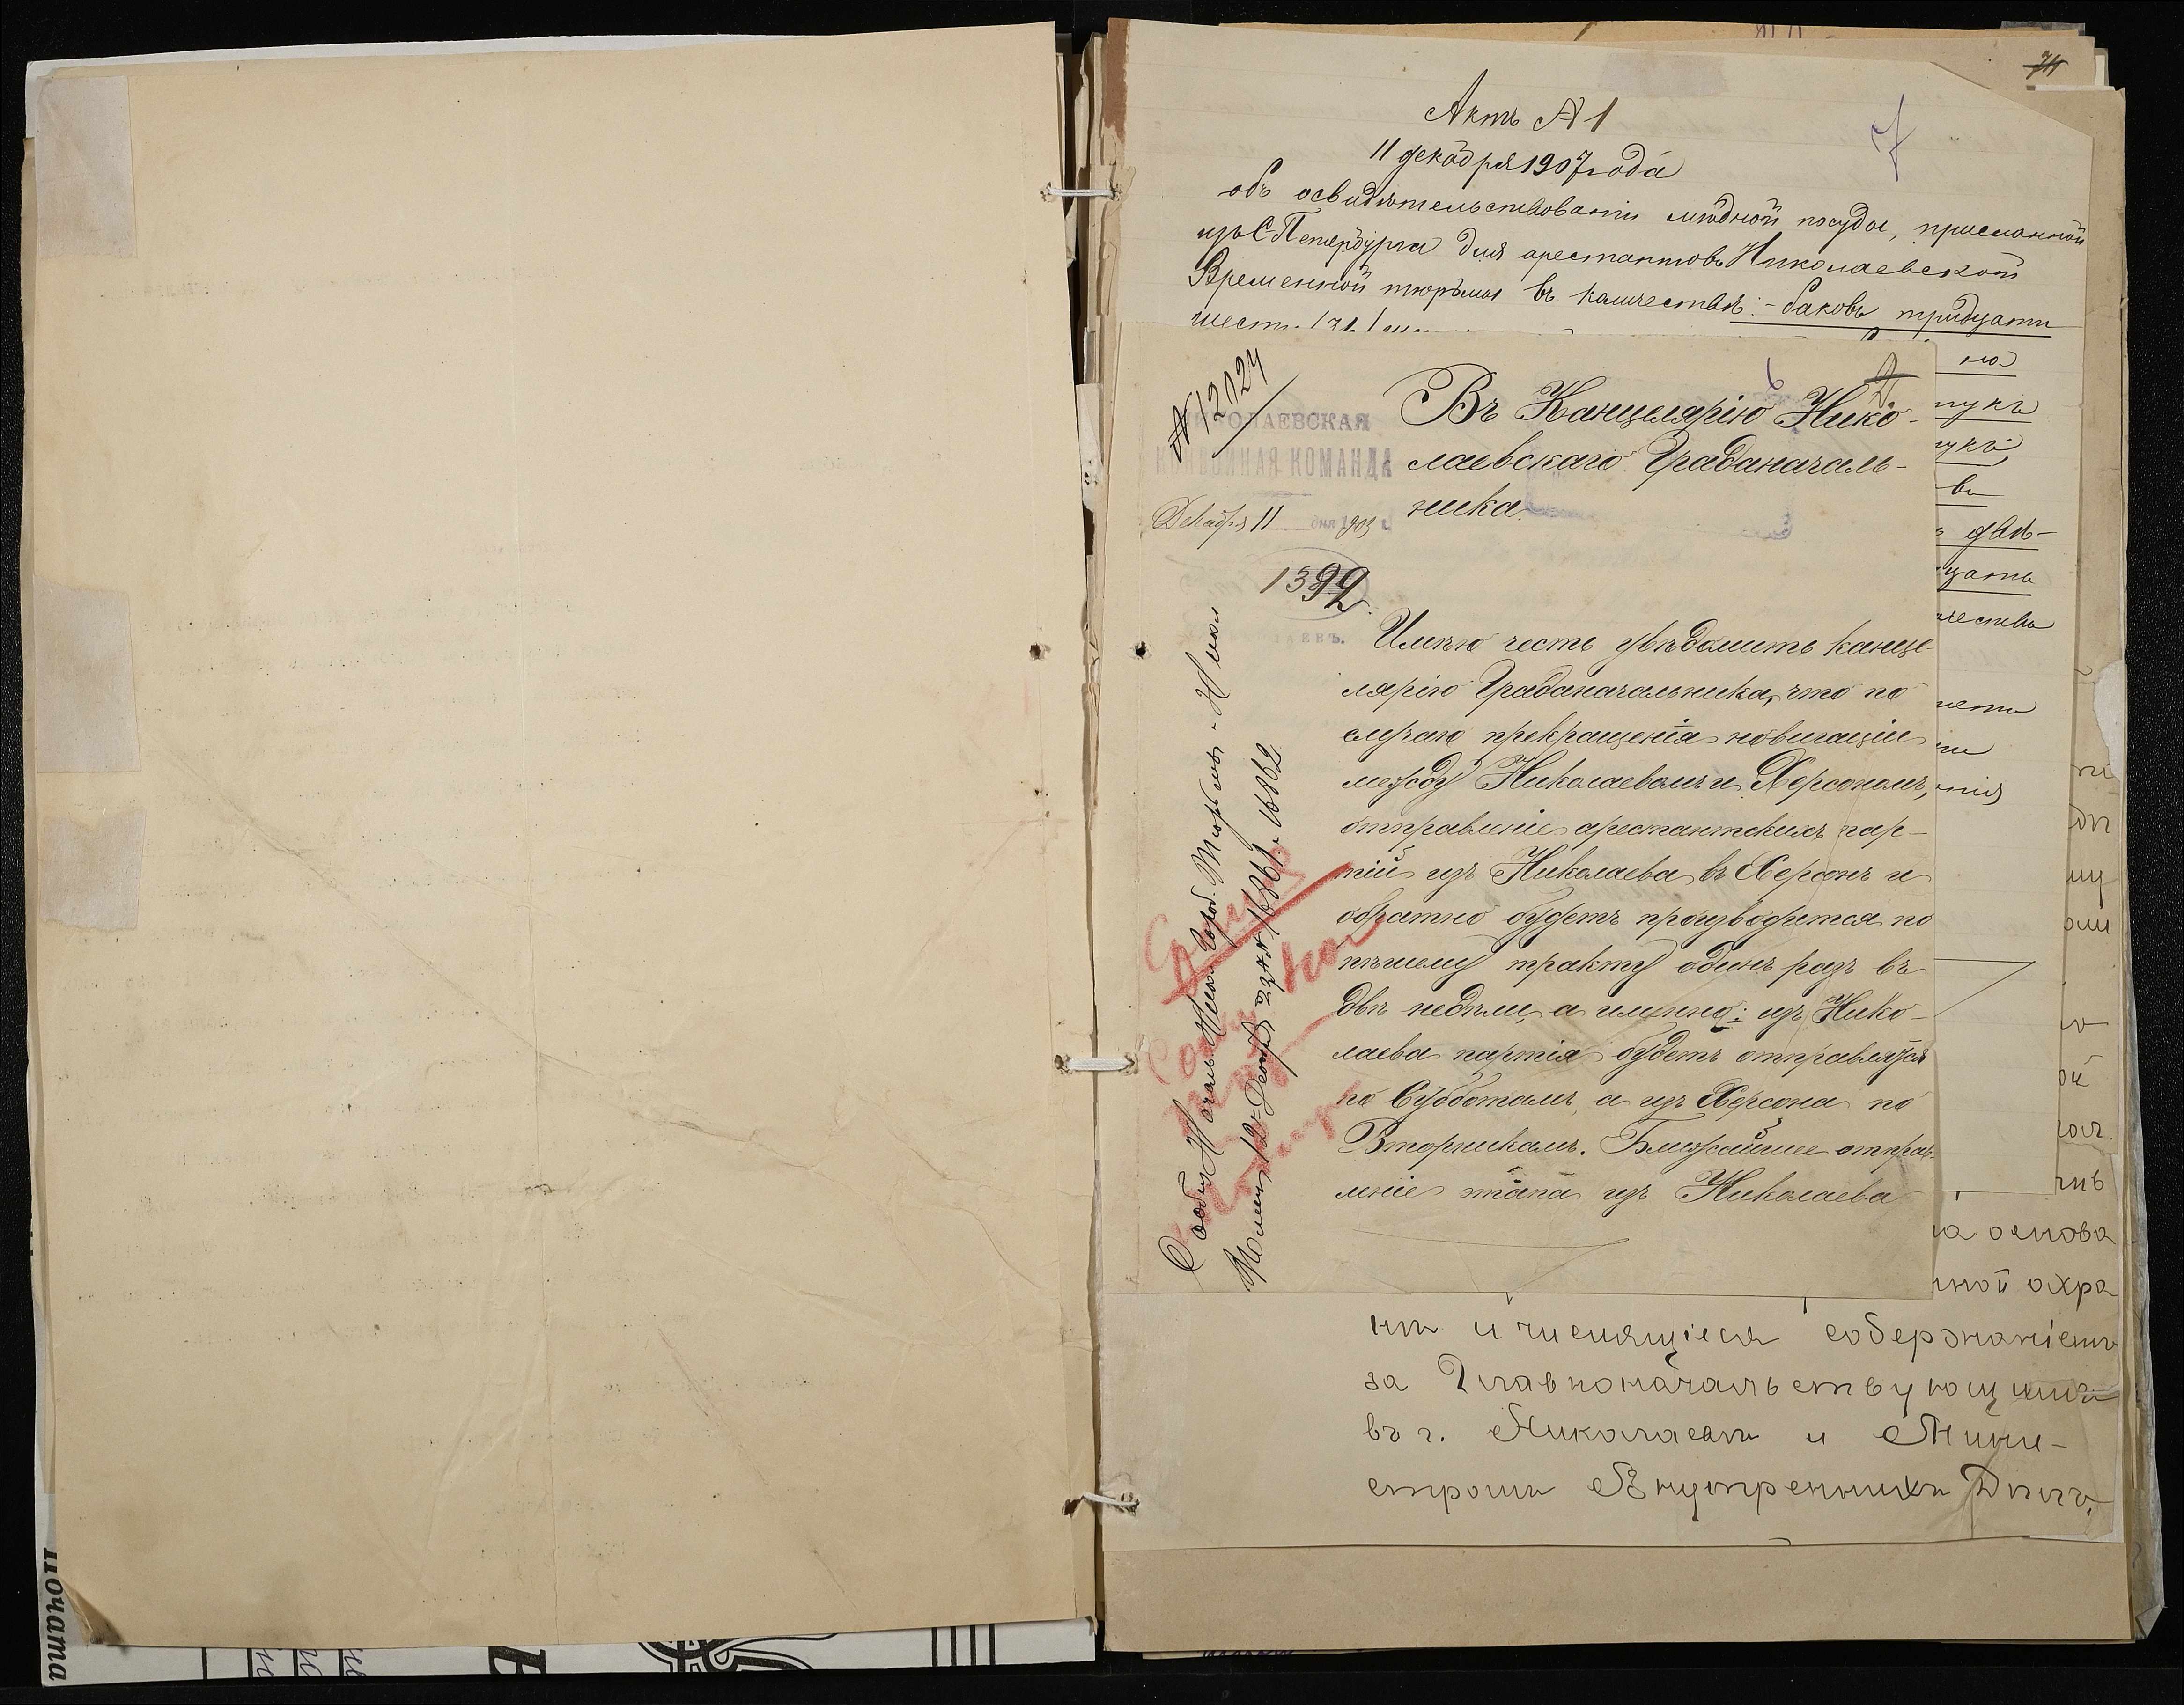 Актъ № 1
11 декабря 1907 года
объ освидѣтельствованіи мѣдной посуды, присланной
изъ С-Петербурга для арестантовъ Николаевской
Временной тюрьмы въ количествѣ: - баковъ тридцати
№ 12024
НИКОЛАЕВСКАЯ
КОНВОЙНАЯ КОМАНДА
Декабря 11 дня 190
1392
Въ Канцелярію Нико-
лаевскаго Градоначаль-
ника.
Имѣю честь увѣдомить канце-
лярію Градоначальника, что по
случаю прекращенія новигаціи
между Николаевомъ и Херсономъ,
отправленіе арестантскихъ пар-
тій изъ Николаева въ Херсонъ и
обратно будетъ производится по
пѣшему тракту одинъ разъ въ
двѣ недѣли, а именно: изъ Нико-
лаева партія будетъ отправлятся
по Субботамъ, а изъ Херсона по
Вторникамъ. Ближайшее отправ-
леніе этапа изъ Николаева
Сообщ. Началь. Никол. Город. Тюрьмы и Никол
Полиц. 12 Декаб. за №№ 16861 и 16862
на
тукъ
двѣ-
цать
чества
на основа
ной охра
ны и числящіеся содержаніемъ
за Главноначальствующимъ
въ г. Николаевѣ и Мини-
стромъ Внутреннихъ Дѣлъ,
почата